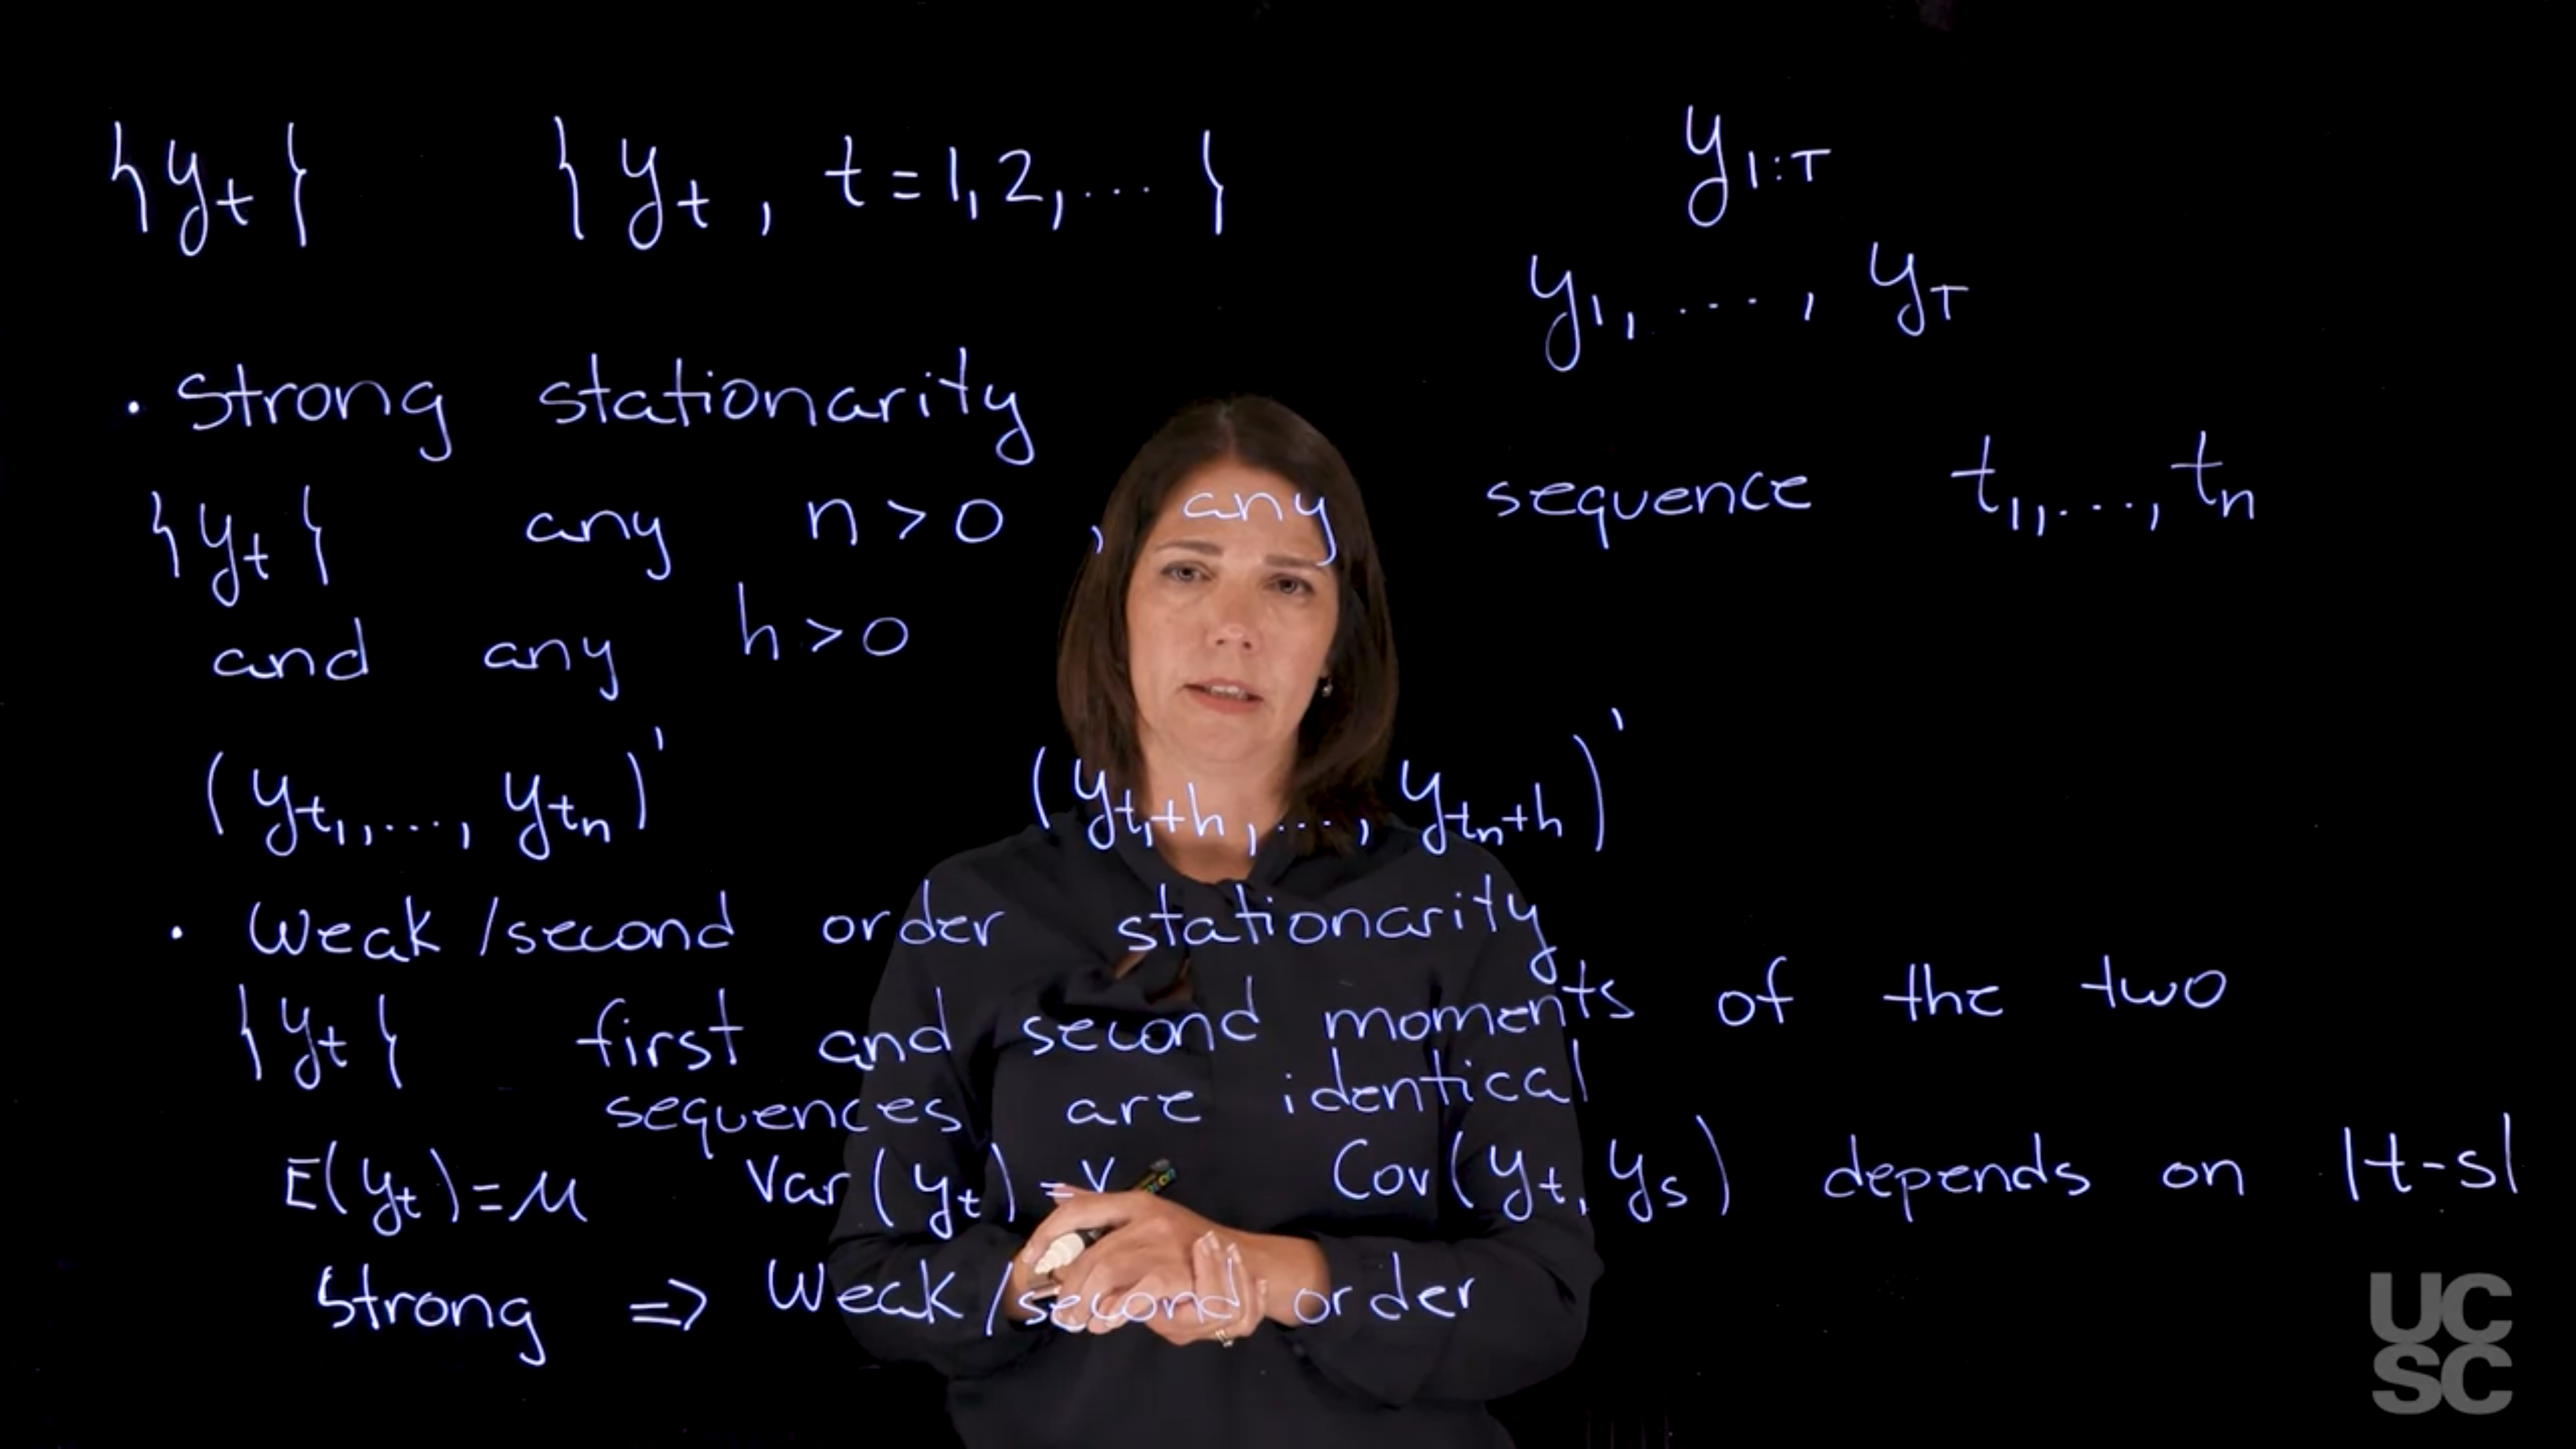 {y_t} {y_t, t=1,2,...} y_{1:T}
y_1, ...., y_T
• Strong stationarity
{y_t} any n>0, any sequence t_1,...,t_n
and any h>0
(y_{t_1},..., y_{t_n})' (y_{t_1+h},..., y_{t_n+h})'
• Weak/second order stationarity
{y_t} first and second moments of the two
sequences are identical
E(y_t)=μ Var(y_t)=v Cov(y_t, y_s) depends on |t-s|
Strong => Weak/second order
UC
SC